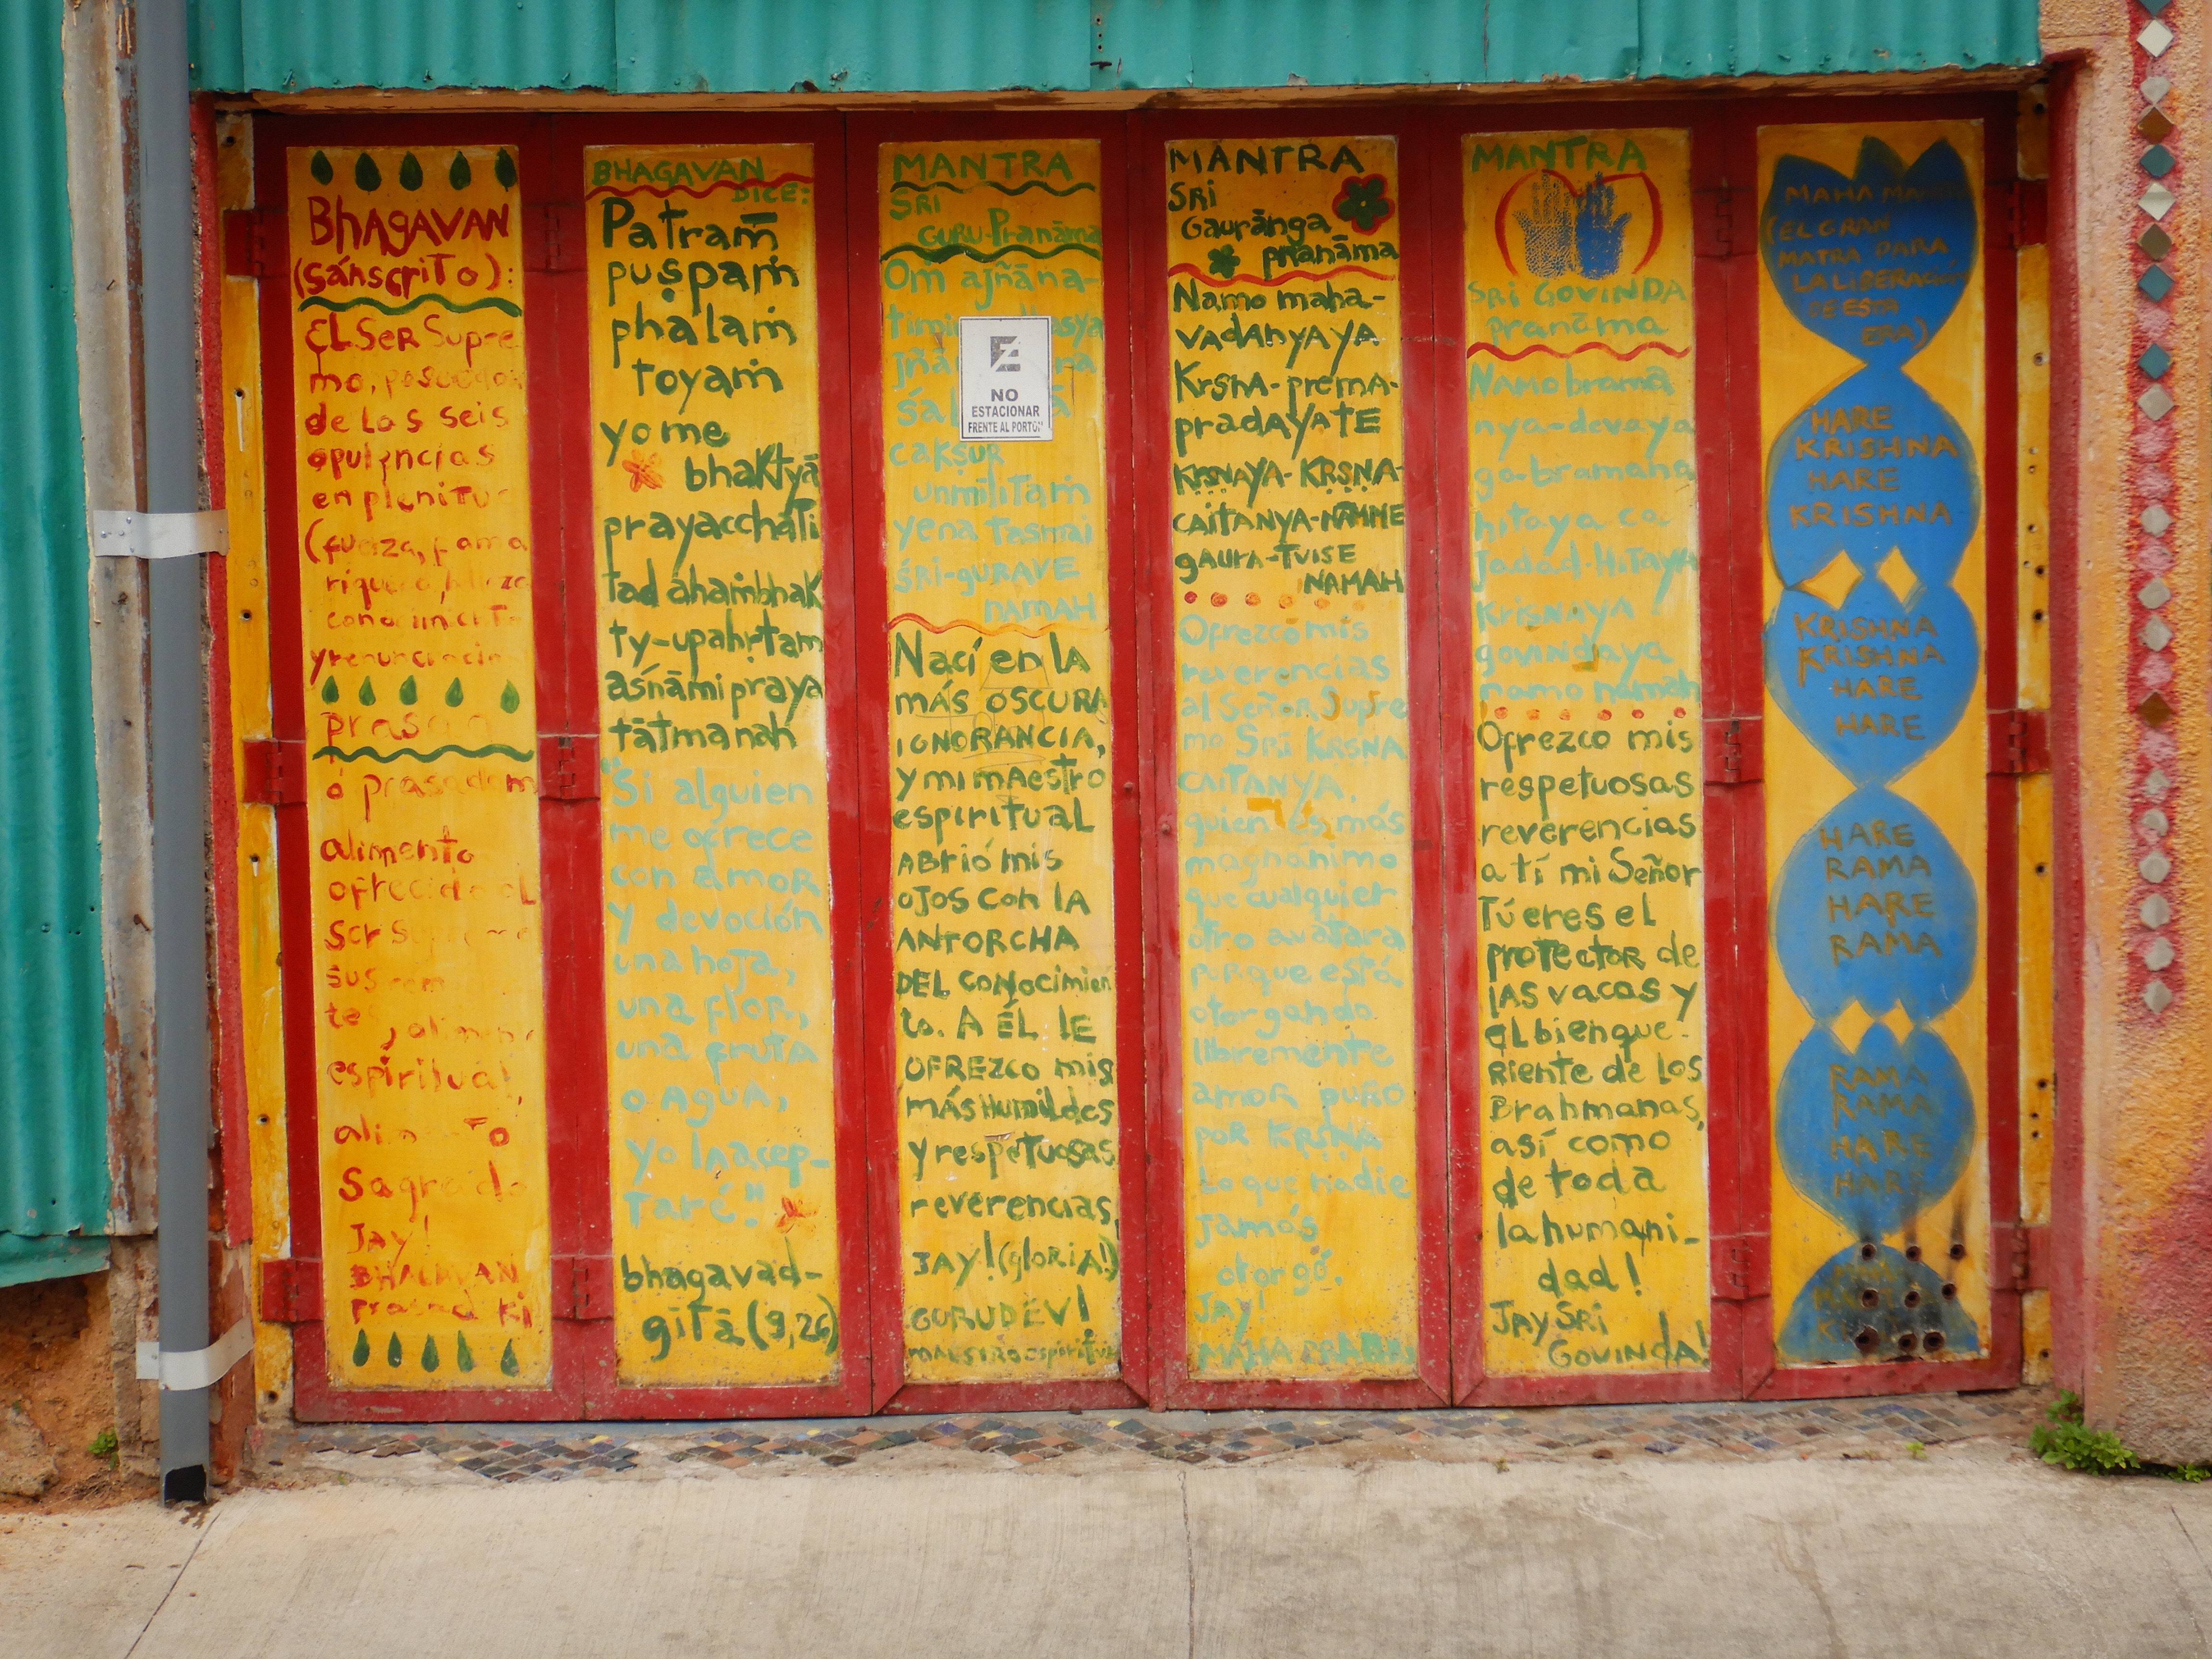 BHAGAVAN
(SÁNSCRITO):
EL SER SUPRE
mo,
de las seis
opulencias
en plenitu
(fuerza, fama
y renunciación
o prasadam
alimento
ofrecido al
Ser
sus
te
espiritual,
Sagrado
JAY!
BHAGAVAN
prasad Ki
BHAGAVAN
DICE:
Patram̄
puṣpaṁ
phalaṁ
toyaṁ
yo me
bhaktyā
prayacchati
tad ahaṁbhak
ty-upahṛtam
aśnāmi praya
tātmanah
"Si alguien
me ofrece
con amor
y devoción
una hoja,
una flor,
una fruta
o agua,
yo la acep-
taré."
bhagavad-
gitā (9,26)
MANTRA
SRI
GURU-Pranāma
Om ajñāna-
cakṣur
unmilitaṁ
yena tasmai
śRi-guRAVE
NAMAH
Nací en la
más oscura
ignorancia,
y mi maestro
espiritual
abrió mis
ojos con la
antorcha
del conocimien
to. A ÉL le
ofrezco mis
más humildes
y respetuosas
reverencias,
JAY! (gloria!)
GURUDEV!
NO
ESTACIONAR
FRENTE AL PORTÓN
MANTRA
SRI
Gaurānga
pranāma
Namo maha-
vadAnyaya
Krsna-prema-
pradAyate
KRṢNAYA-KRṢNA-
CAITANYA-NAMNE
gaura-TVISE
NAMAH
Ofrezco mis
reverencias
al Señor Supre
mo Sri KRSNA
CAITANYA,
quien es más
magnánimo
que cualquier
otro avatara
porque está
otorgando
libremente
amor puro
por KRSNA
Lo que nadie
jamás
otorgó.
Jay!
MAHA PRABU
MANTRA
SRI GOVINDA
pranāma
Namo bramā
nya-devaya
go-bramana
hitaya ca
Jadad-Hitaya
Krisnaya
govindaya
namo namah
Ofrezco mis
respetuosas
reverencias
a tí mi Señor
Tú eres el
protector de
las vacas y
el bienque-
riente de los
Brahmanas,
así como
de toda
la humani-
dad!
JAY SRI
GOVINDA!
MAHA MANTRA
(EL GRAN
MATRA PARA
LA LIBERACIÓN
DE ESTA
ERA)
HARE
KRISHNA
HARE
KRISHNA
KRISHNA
KRISHNA
HARE
HARE
HARE
RAMA
HARE
RAMA
RAMA
RAMA
HARE
HARE